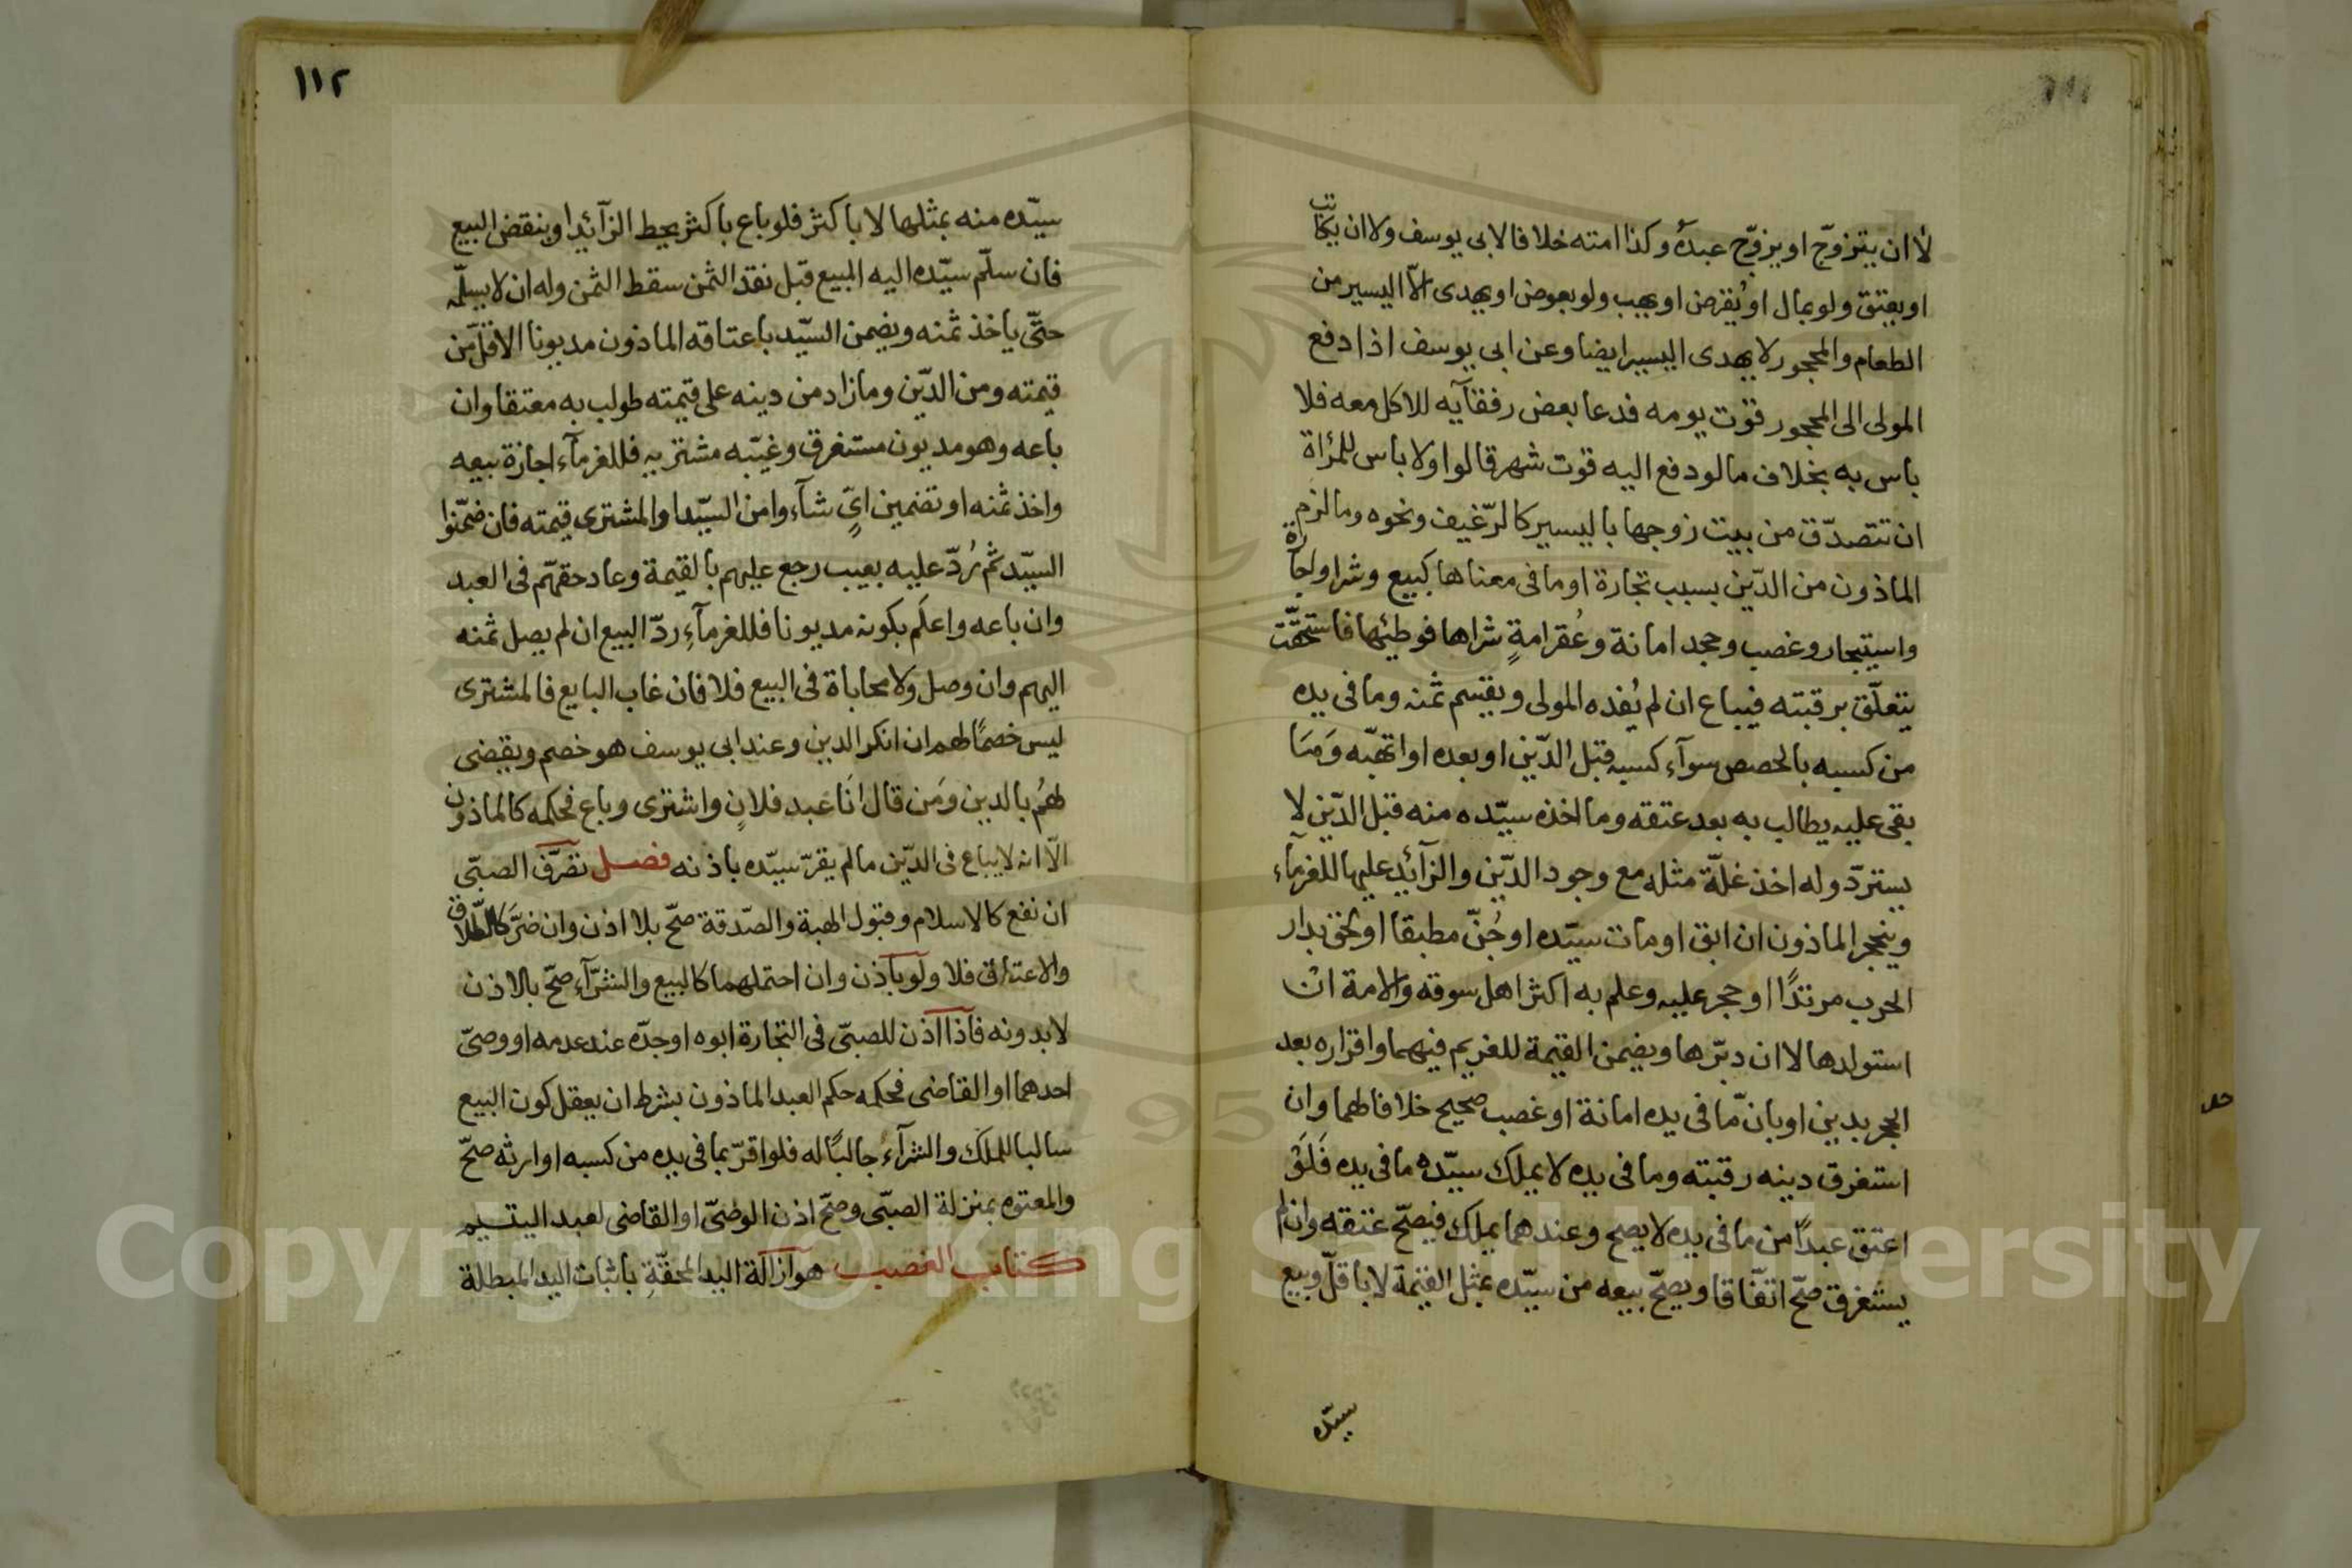 لا ان يتزوّج او يزوّج عبده وكذا امته خلافا لابى يوسف ولا ان يكاتب
او يعتق ولو بمال او يُقرض او يهب ولو بعوض او يهدى الّا اليسير من
الطعام والمحجور لا يهدى اليسير ايضا وعن ابى يوسف اذا دفع
المولى الى المحجور قوت يومه فدعا بعض رفقآيه للاكل معه فلا
باس به بخلاف ما لو دفع اليه قوت شهر قالوا ولا باس للمرأة
ان تتصدّق من بيت زوجها باليسير كالرّغيف ونحوه وما لزم
الماذون من الدّين بسبب تجارة او ما فى معناها كبيع وشرا واجارة
واستيجار وغصب وجحد امانة وعُقر امةٍ شراها فوطئها فاستحقّت
يتعلّق برقبته فيباع ان لم يُفده المولى ويقسم ثمنه وما فى يده
من كسبه بالحصص سوآء كسبه قبل الدّين او بعده او اتهبّه وَمَا
بقى عليه يطالب به بعد عتقه وما اخذه سيّده منه قبل الدّين لا
يستردّ وله اخذ غلّة مثله مع وجود الدّين والزآئد عليها للغرمآء
وينحجر الماذون ان ابق او مات سيّده او جُنّ مطبقا او لحق بدار
الحرب مرتدًا او حجر عليه وعلم به اكثر اهل سوقه والامة ان
استولدها لا ان دبّرها ويضمن القيمة للغريم فيهما واقراره بعد
الحجر بدين او بانّ ما فى يده امانة او غصب صحيح خلافا لهما وان
استغرق دينه رقبته وما فى يده لا يملك سيّده ما فى يده فَلَوْ
اعتق عبدًا من ما فى يده لا يصح وعندهما يملك فيصحّ عتقه وان لم
يستغرق صحّ اتفّاقا ويصحّ بيعه من سيّده بمثل القيمة لا باقلّ وبيع
سيّده
١١٢
سيّده منه بمثلها لا باكثر فلو باع باكثر يحط الزآئد او ينقض البيع
فان سلّم سيّده اليه المبيع قبل نقد الثمن سقط الثمن وله ان لا يسلّمه
حتّى ياخذ ثمنه ويضمن السيّد باعتاقه الماذون مديونا الاقلّ من
قيمته ومن الدّين وما زاد من دينه على قيمته طولب به معتقا وان
باعه وهو مديون مستغرق وغيّبه مشتريه فللغرمآء اجازة بيعه
واخذ ثمنه او تضمين اىٍّ شآءوا من السيّد او المشترى قيمته فان ضمّنوا
السيّد ثم رُدّ عليه بعيب رجع عليهم بالقيمة وعاد حقهّم فى العبد
وان باعه واعلَم بكونه مديونا فللغرمآءِ ردّ البيع ان لم يصل ثمنه
اليهم وان وصل ولا محاباة فى البيع فلا فان غاب البايع فالمشترى
ليس خصمًا لهم ان انكر الدين وعند ابى يوسف هو خصم ويقضى
لهُم بالدين وَمَن قال انَا عَبد فلانٍ واشترى وباع فحكمه كالماذون
الّا انه لا يباع فى الدّين ما لم يقرّ سيّده باذنه فصل تصرّف الصبىّ
ان نفع كالاسلام وقبول الهبة والصّدقة صحّ بلا اذن وان ضرَّ كالطّلاق
والاعتاق فلا ولو باذن وان احتملهما كالبيع والشرآءِ صحّ بالاذن
لا بدونه فاذا اذن للصبىّ فى التجارة ابوه او جدّه عند عدمه او وصىّ
احدهما او القاضى فحكمه حكم العبد الماذون بشرط ان يعقل كون البيع
سالبا للملك والشرآءُ جالبًا له فلو اقرّ بما فى يده من كسبه او ارثه صحّ
والمعتوه بمنزلة الصبّى وصحّ اذن الوصىّ او القاضى لعبد اليتيم
كتاب الغصب هو ازالة اليد المحقّةِ باثبات اليد المبطلة
Copyright © King Saud University